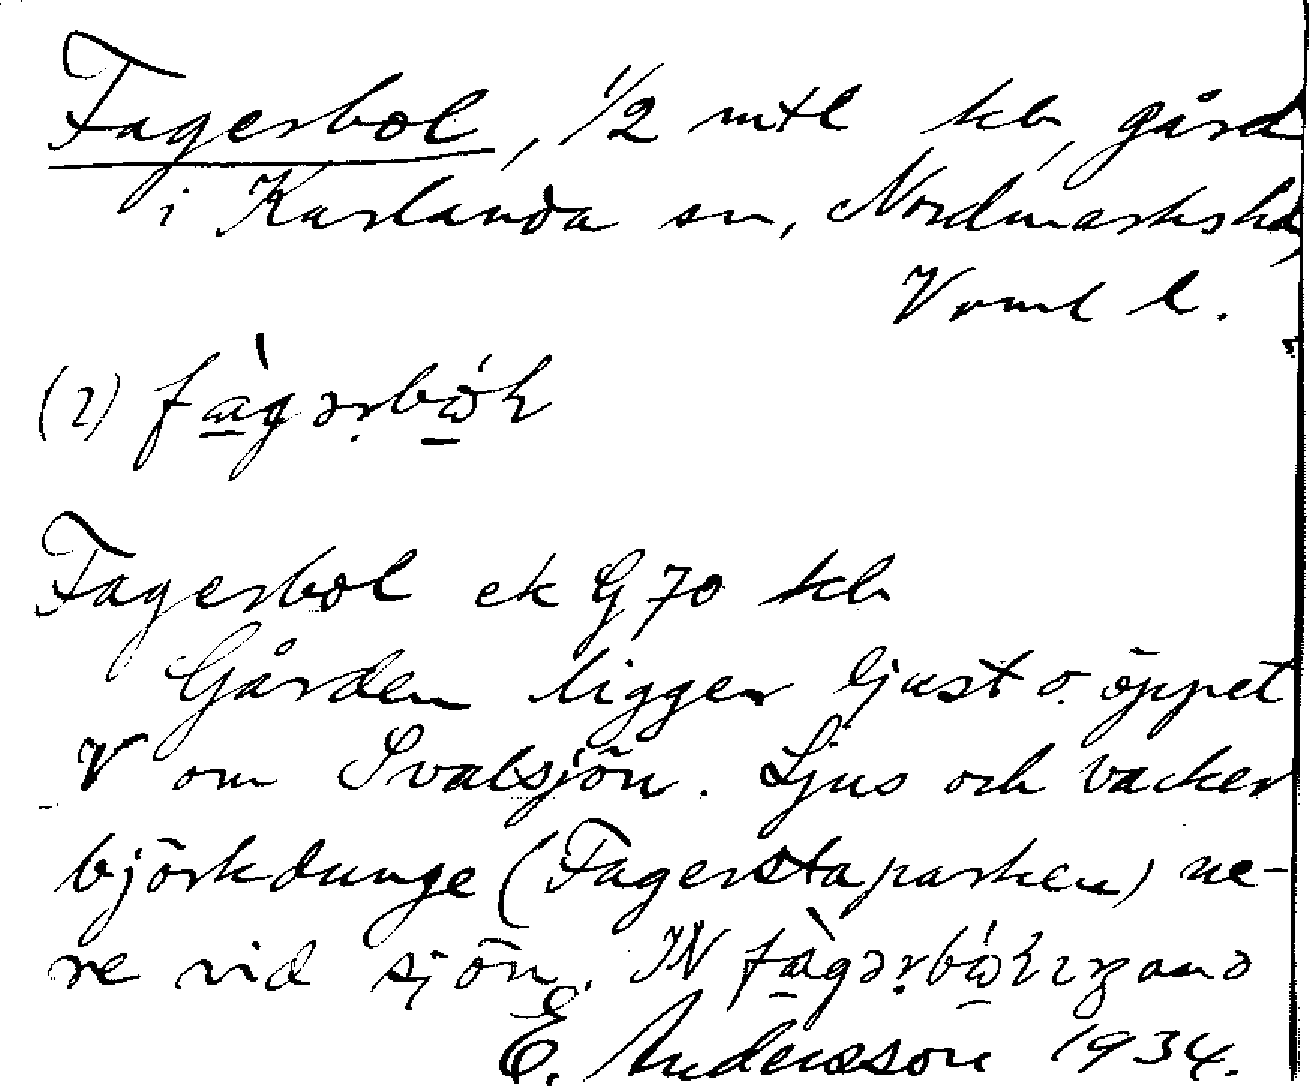 Fagerbol, 1/2 mtl kb, gård
i Karlanda sn, Nordmarks hd,
Vrml l.
(2)
Fagerbol ek G 70 kb
Gården ligger ljust o. öppet
V om Svalsjön. Ljus och vacker
björkdunge (Fagerstaparken) ne-
re vid sjön. IN
E. Andersson 1934.